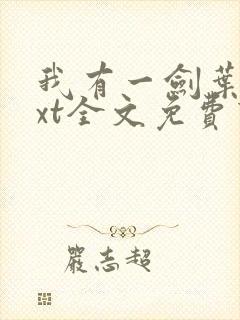 我有一劍葉
xt全文免費
嚴志超